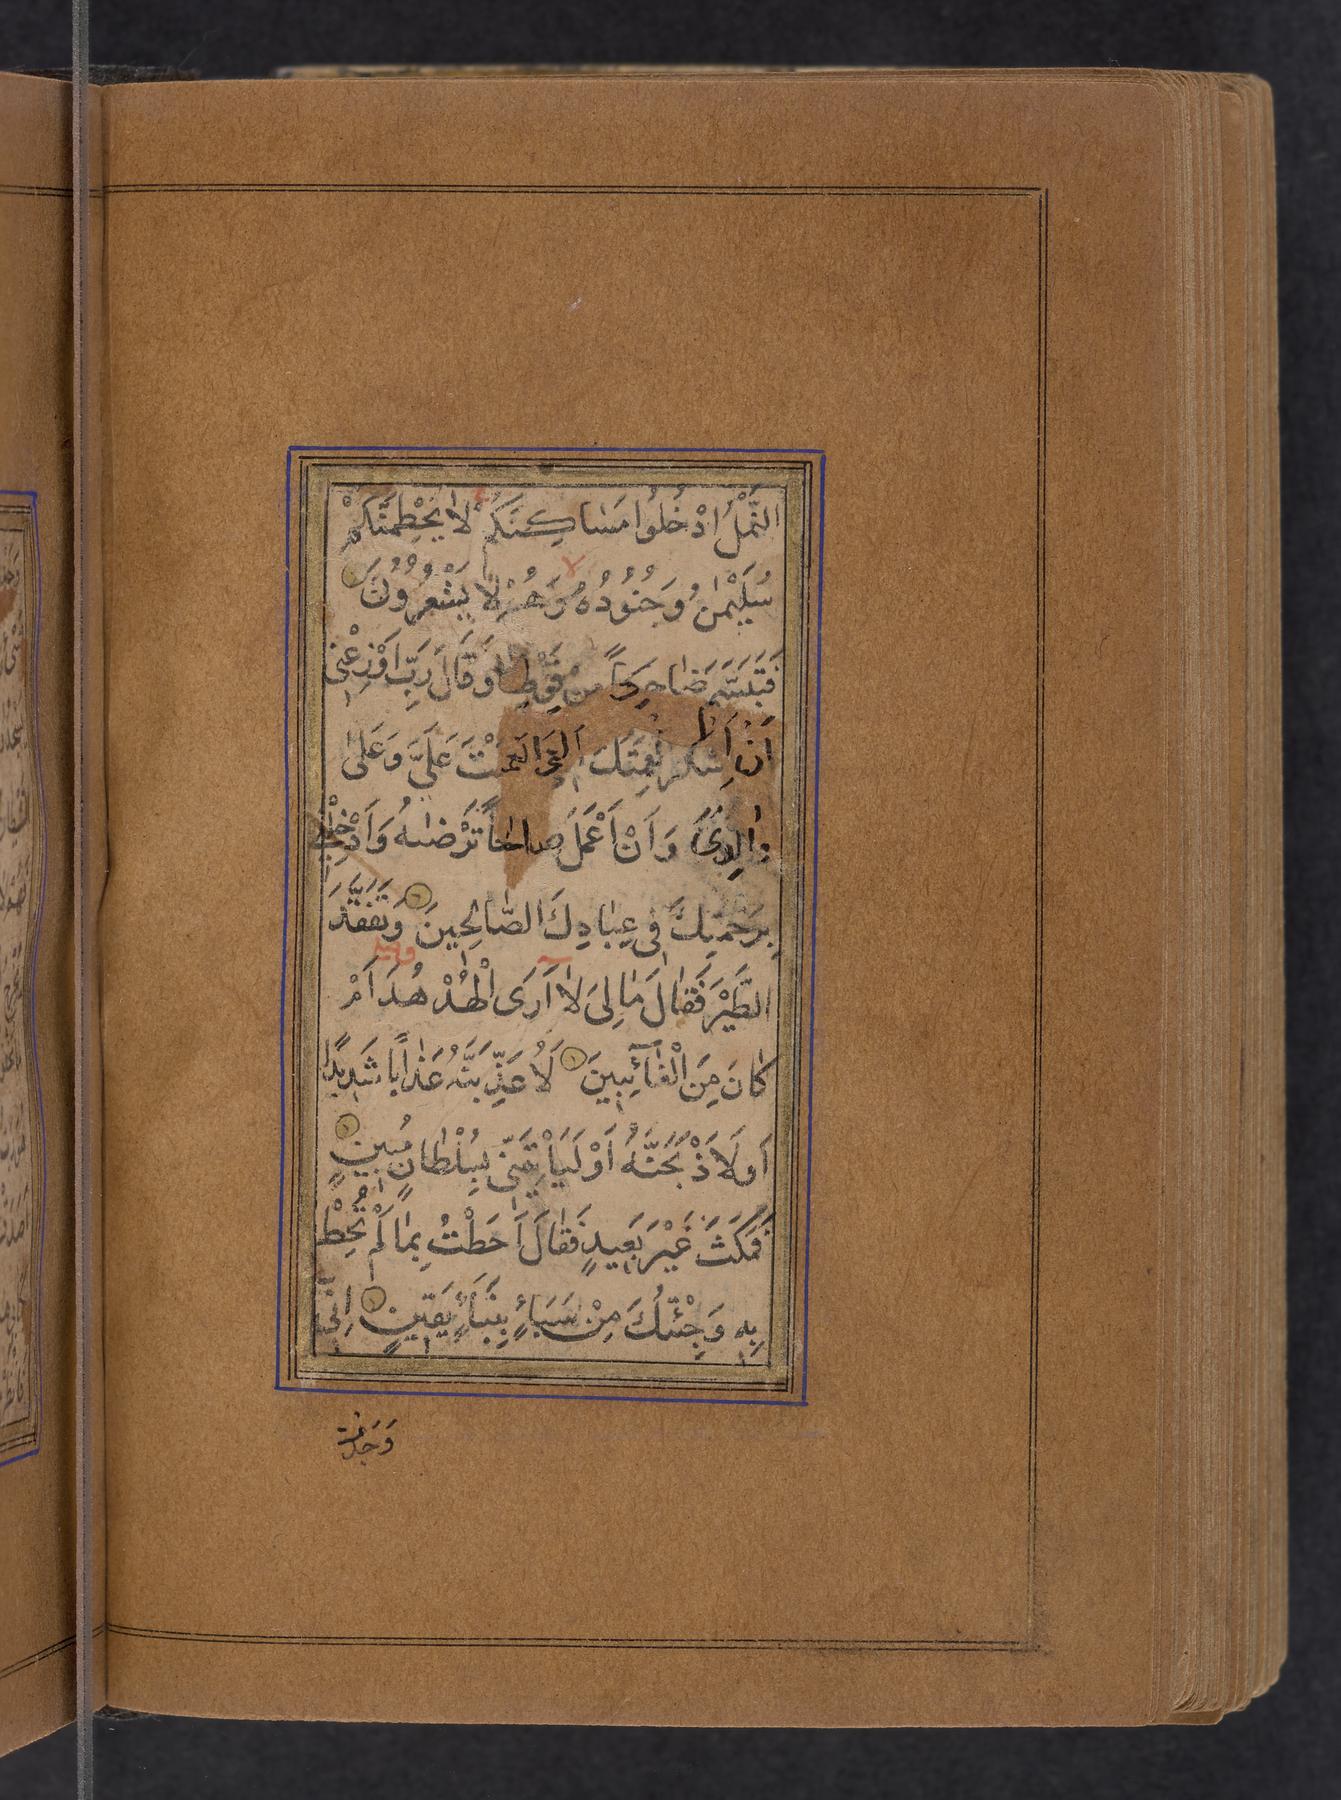 النَّمْلُ ادْخُلُوا مَسَاكِنَكُمْ لَا يَحْطِمَنَّكُمْ
سُلَيْمٰنُ وَجُنُودُهُ وَهُمْ لَا يَشْعُرُونَ
فَتَبَسَّمَ ضَاحِكاً مِنْ قَوْلِهَا وَقَالَ رَبِّ اَوْزِعْنِى
اَنْ اَشْكُرَ نِعْمَتَكَ الَّتِى اَنْعَمْتَ عَلَىَّ وَعَلىٰ
وٰالِدَىَّ وَاَنْ اَعْمَلَ صٰالِحاً تَرْضٰيهُ وَاَدْخِلْنِى
بِرَحْمَتِكَ فِى عِبَادِكَ الصَّالِحِينَ وَتَفَقَّدَ
الطَّيْرَ فَقٰالَ مٰا لِىَ لٰا اَرَى الْهُدْهُدَ اَمْ
كٰانَ مِنَ الْغٰآئِبِينَ لَاُعَذِّبَنَّهُ عَذٰاباً شَدِيداً
اَوْ لَاَذْبَحَنَّهُ اَوْ لَيَأْتِيَنِّى بِسُلْطٰانٍ مُبِينٍ
فَمَكَثَ غَيْرَ بَعِيدٍ فَقٰالَ اَحَطْتُ بِمٰا لَمْ تُحِطْ
بِهِ وَجِئْتُكَ مِنْ سَبَاءٍ بِنَبَاءٍ يَقِينٍ اِنِّى
وَجَدْتُ